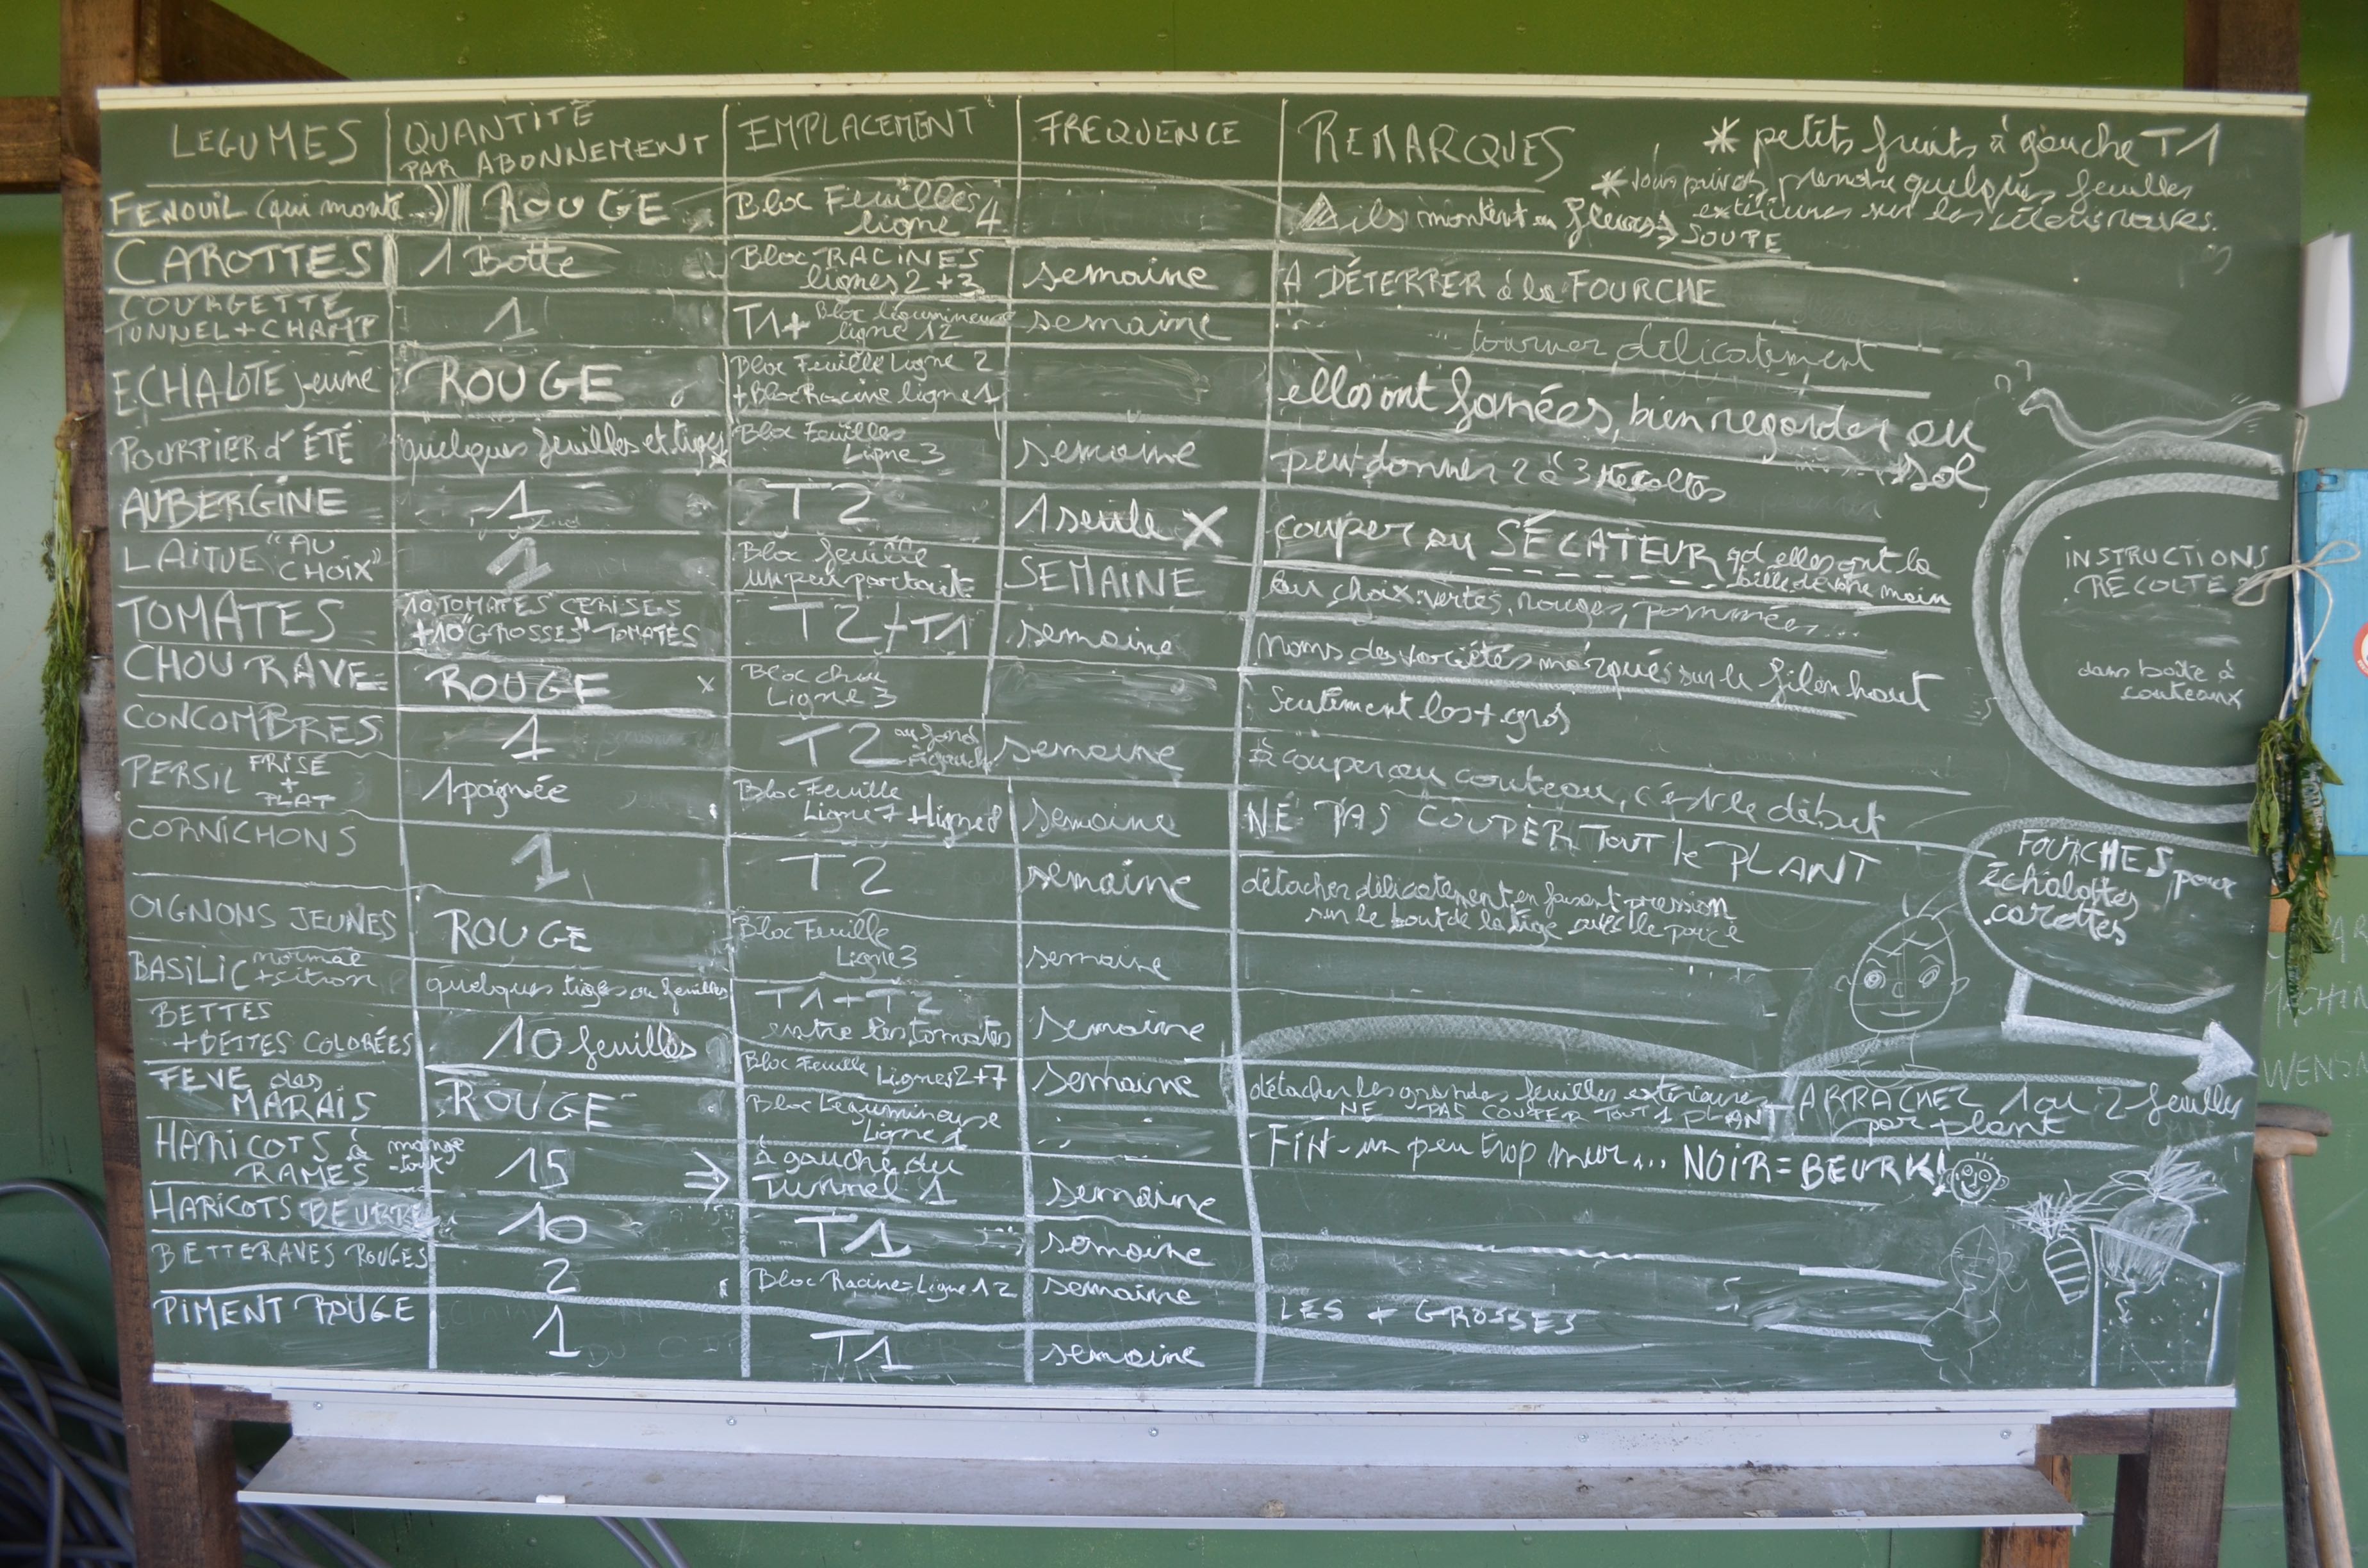 LEGUMES QUANTITÉ PAR ABONNEMENT EMPLACEMENT FREQUENCE REMARQUES
* petits fruits à gauche T1
* vous pouvez prendre quelques feuilles
extérieures sur les céleris raves.
FENOUIL (qui monte...) ROUGE Bloc Feuilles ligne 4 ils montent en fleurs → SOUPE
CAROTTES 1 Botte Bloc RACINES lignes 2+3 semaine A DÉTERRER à la FOURCHE
COURGETTE TUNNEL + CHAMP 1 T1+ Bloc légumineuse ligne 12 semaine tourner délicatement
ECHALOTE jeune ROUGE Bloc Feuille Ligne 2 + Bloc Racine ligne 1 elles ont fanées, bien regarder au sol
POURPIER d'ÉTÉ quelques feuilles et tiges Bloc Feuilles Ligne 3 semaine peut donner 2 à 3 récoltes
AUBERGINE 1 T2 1 seule X couper au SÉCATEUR qd elles ont la taille de votre main
LAITUE "AU CHOIX" 1 Bloc feuille un peu partout SEMAINE au choix: vertes, rouges, pommées...
TOMATES 10 TOMATES CERISES +10 "GROSSES" TOMATES T2 + T1 semaine Noms des variétés marqués sur le fil en haut
CHOU RAVE ROUGE x Bloc chou Ligne 3 Seulement les + gros
CONCOMBRES 1 T2 au fond à gauche semaine à couper au couteau, c'est le début
PERSIL FRISÉ + PLAT 1 poignée Bloc Feuille Ligne 7 + ligne 8 semaine NE PAS COUPER TOUT le PLANT
CORNICHONS 1 T2 semaine détacher délicatement en faisant pression
sur le bout de la tige avec le pouce
OIGNONS JEUNES ROUGE Bloc Feuille Ligne 3 semaine
BASILIC normal + citron quelques tiges ou feuilles T1 + T2 entre les tomates semaine
BETTES + BETTES COLORÉES 10 feuilles Bloc Feuille Lignes 2+7 semaine détacher les grandes feuilles extérieures
NE PAS COUPER TOUT 1 PLANT
ARRACHEZ 1 ou 2 feuilles
par plant
FEVE des MARAIS ROUGE Bloc Légumineuse Ligne 1 FIN - un peu trop mur... NOIR = BEURK!
HARICOTS à RAMES mange-tout 15 ⇒ à gauche du Tunnel 1 semaine
HARICOTS BEURRE 10 T1 semaine
BETTERAVES ROUGES 2 Bloc Racine = Ligne 12 semaine LES + GROSSES
PIMENT ROUGE 1 T1 semaine
INSTRUCTIONS
RÉCOLTE
dans boîte à
couteaux
FOURCHES pour
échalottes
carottes